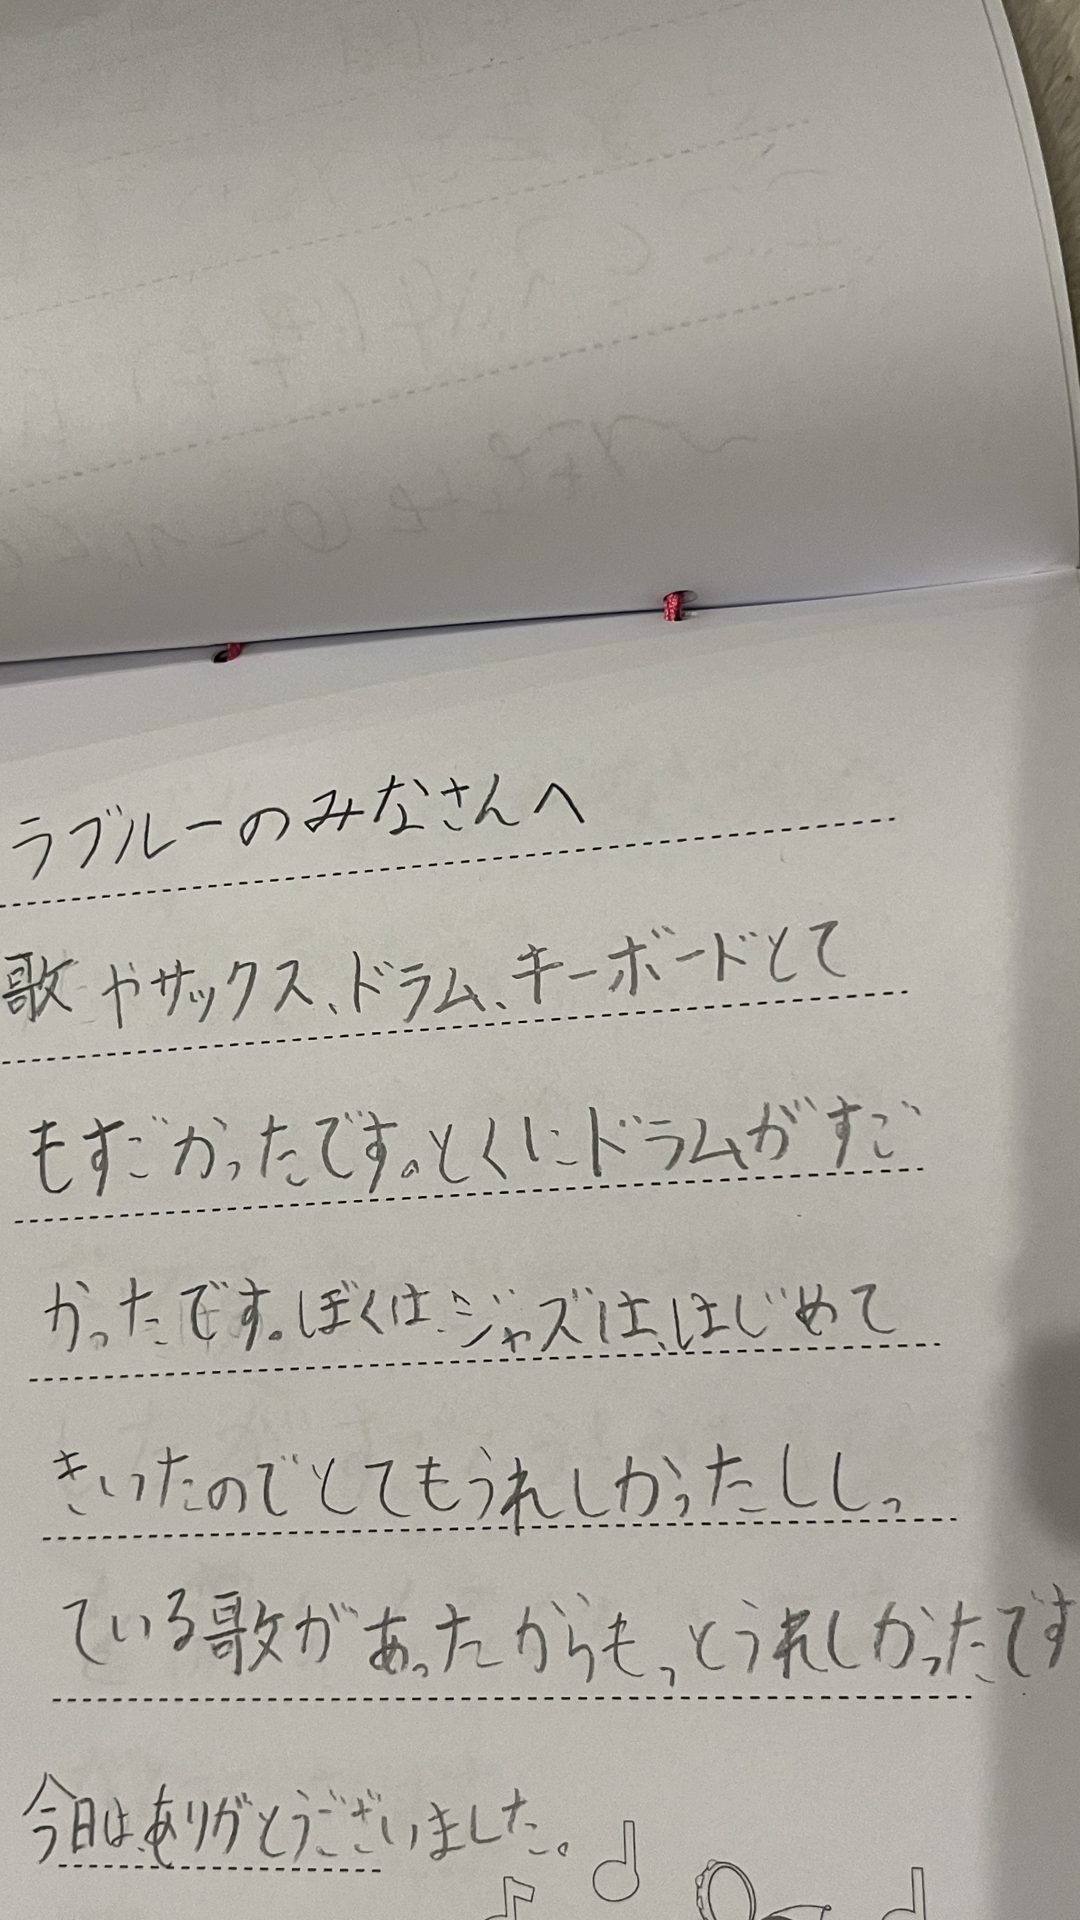 ラブルーのみなさんへ
歌やサックス、ドラム、キーボードとて
もすごかったです。とくにドラムがすご
かったです。ぼくは、ジャズは、はじめて
きいたのでとてもうれしかったししっ
ている歌があったからもっとうれしかったです
今日は、ありがとうございました。